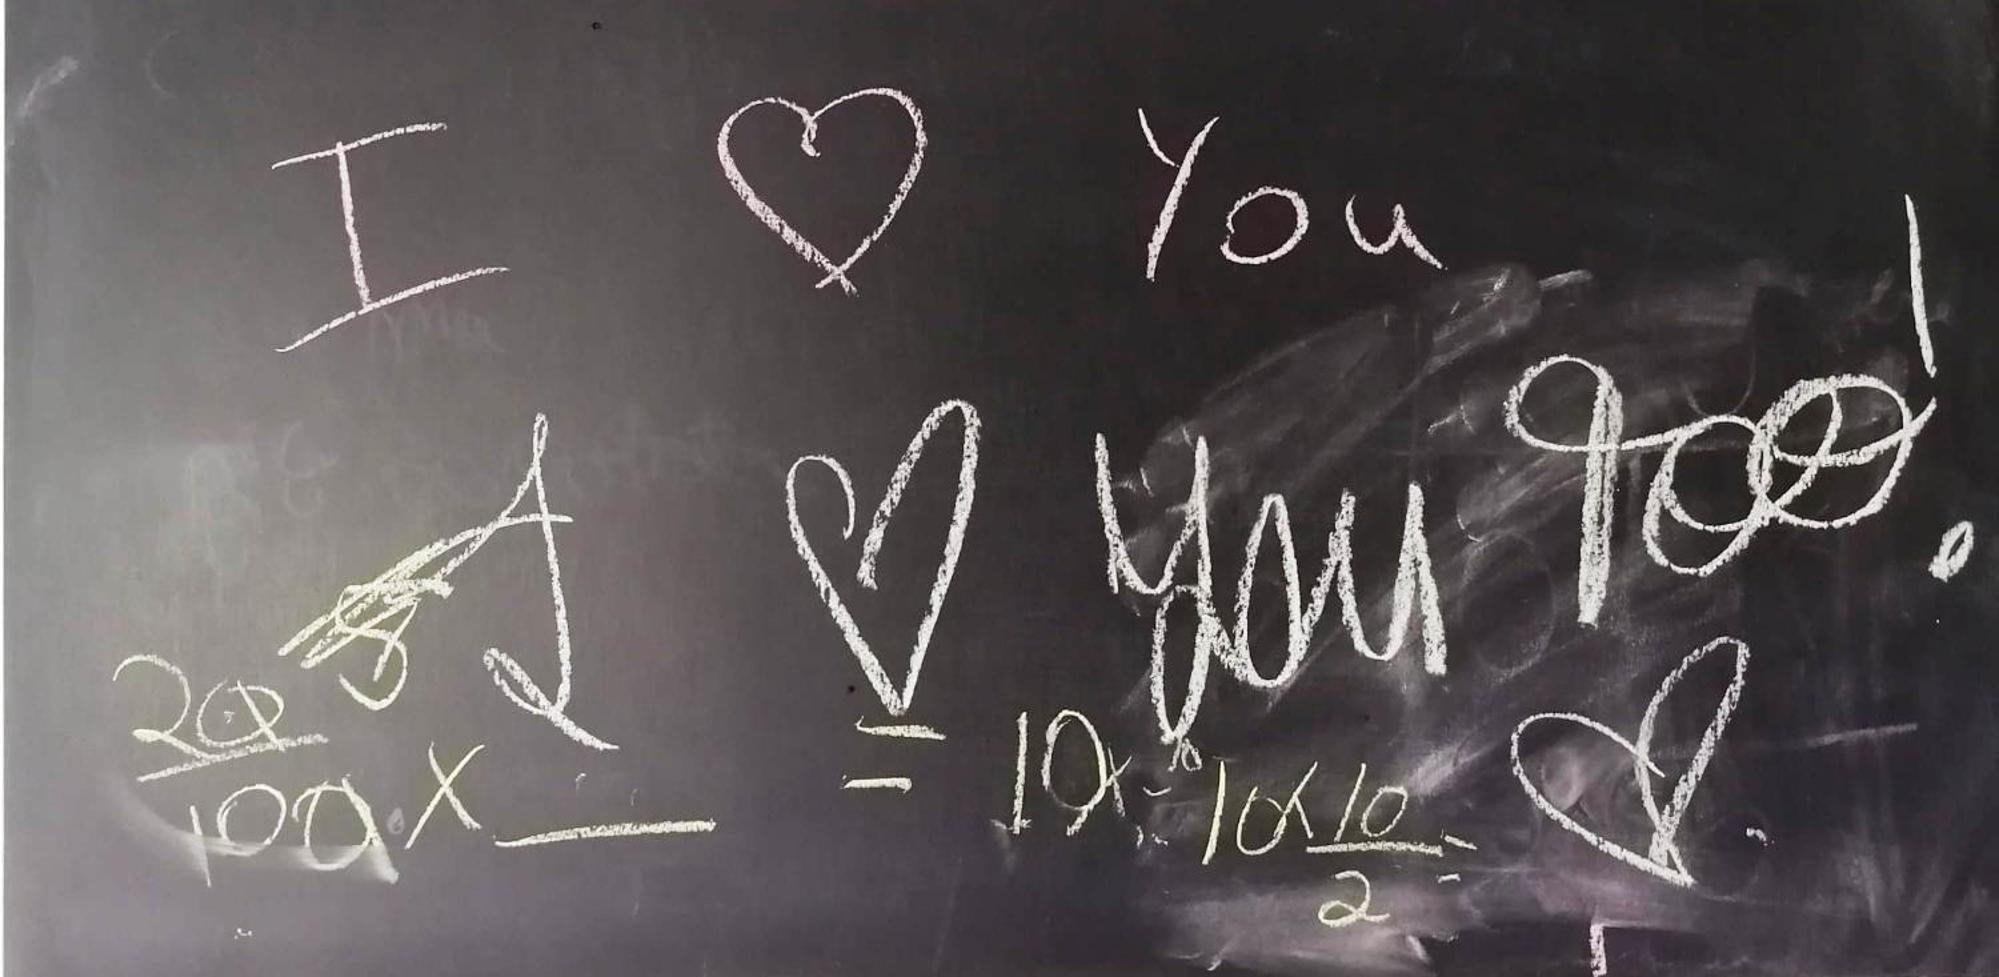 I ♥ You
I ♥ you too!
20/100 × ___ = 10
10 × 10/2 =